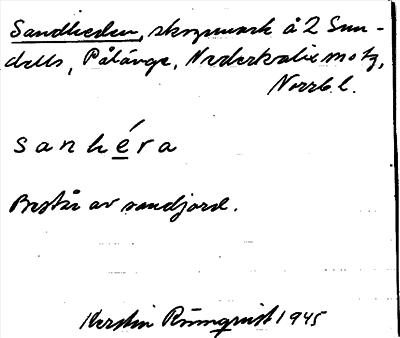 Sandheden, skogsmark å 2 Sun-
dells, Pålänge, Nederkalix motz,
Norrb. l.
sanhéra
Består av sandjord.
Kerstin Rönnqvist 1945